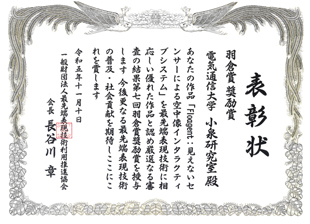 表彰状
羽倉賞奨励賞
電気通信大学 小泉研究室 殿
あなたの作品「Fioagent：見えないセ
ンサーによる空中像インタラクティ
ブシステム」を最先端表現技術に相
応しい優れた作品と認め厳選なる審
査の結果第七回羽倉賞奨励賞を授与
します 今後更なる最先端表現技術
の普及・社会貢献を期待しここにこ
れを賞します
令和五年十一月十日
一般財団法人最先端表現技術利用推進協会
会長 長谷川 章